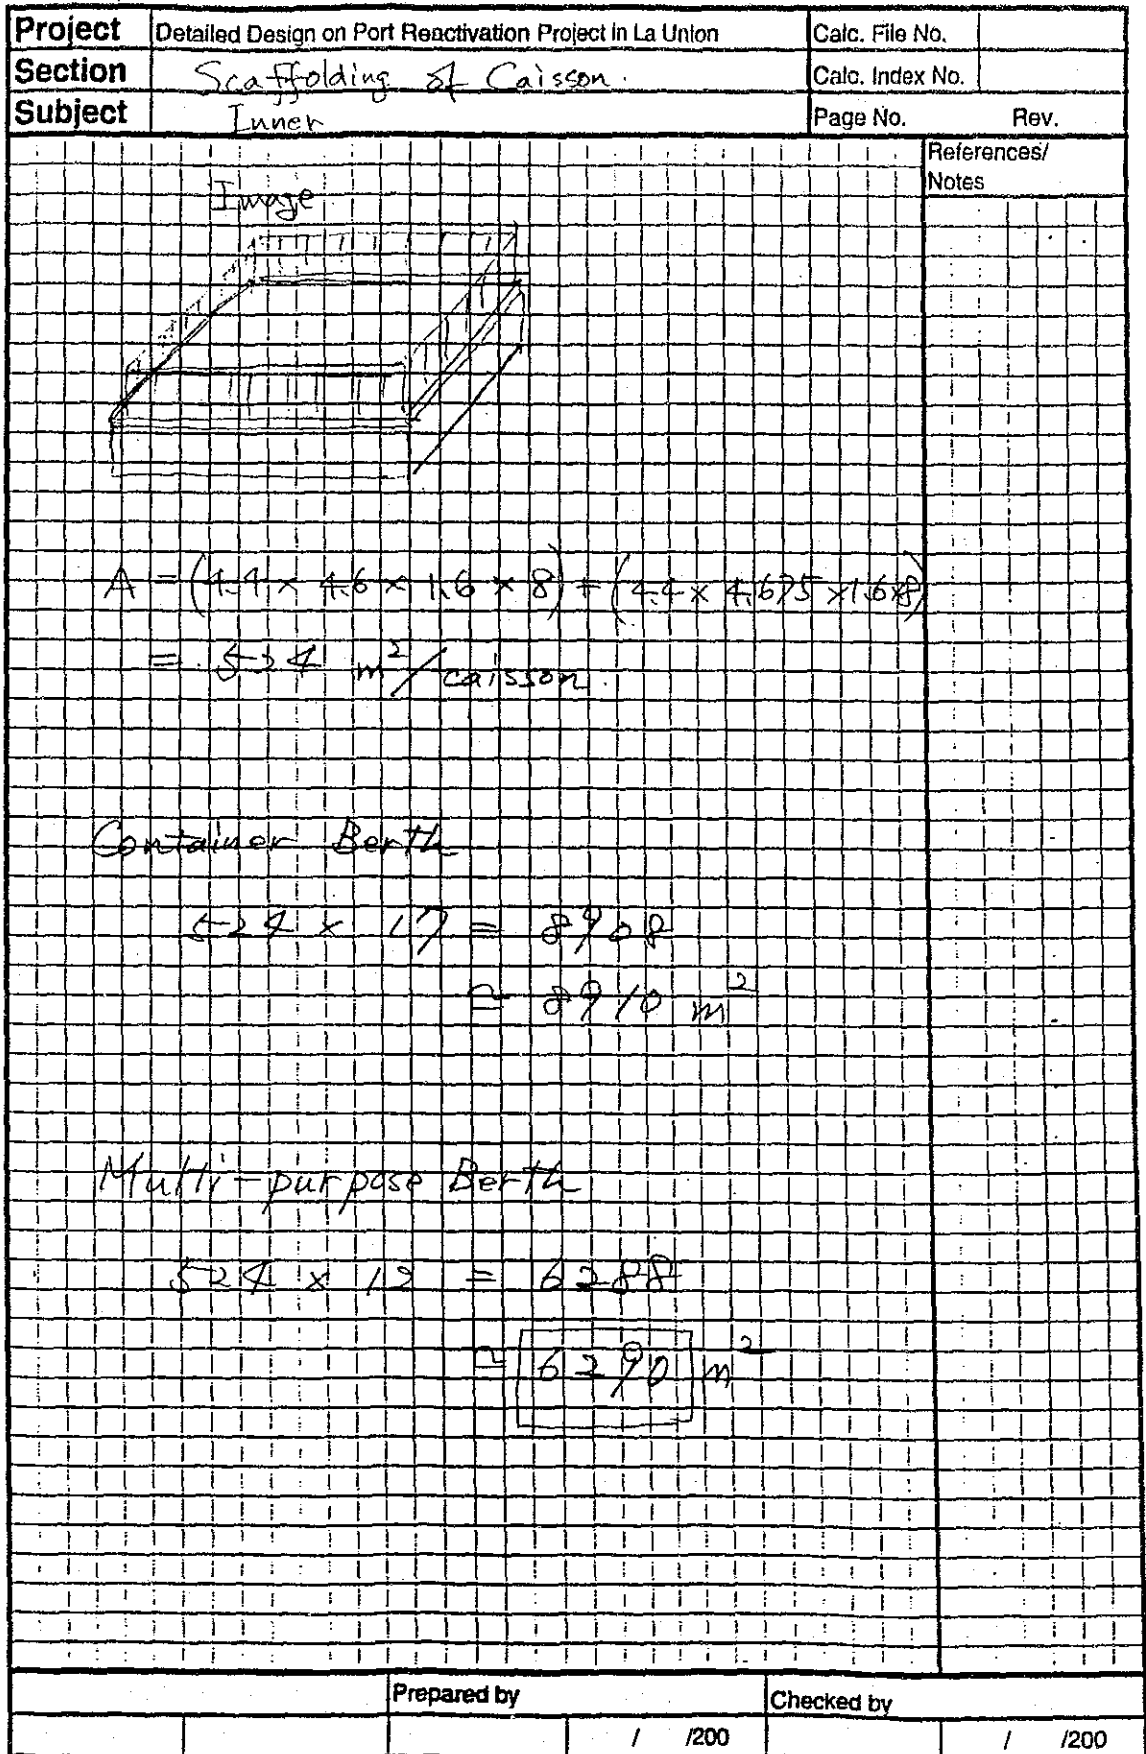 Project Detailed Design on Port Reactivation Project in La Union Calc. File No.
Section Scaffolding of Caisson. Calc. Index No.
Subject Inner Page No. Rev.
References/
Notes
Image
A = (4.4 × 4.6 × 1.6 × 8) + (4.4 × 4.675 × 1.6 × 8)
= 524 m²/caisson.
Container Berth
524 × 17 = 8908
≃ 8910 m²
Multi-purpose Berth
524 × 12 = 6288
≃ 6290 m²
Prepared by Checked by
/ /200 / /200